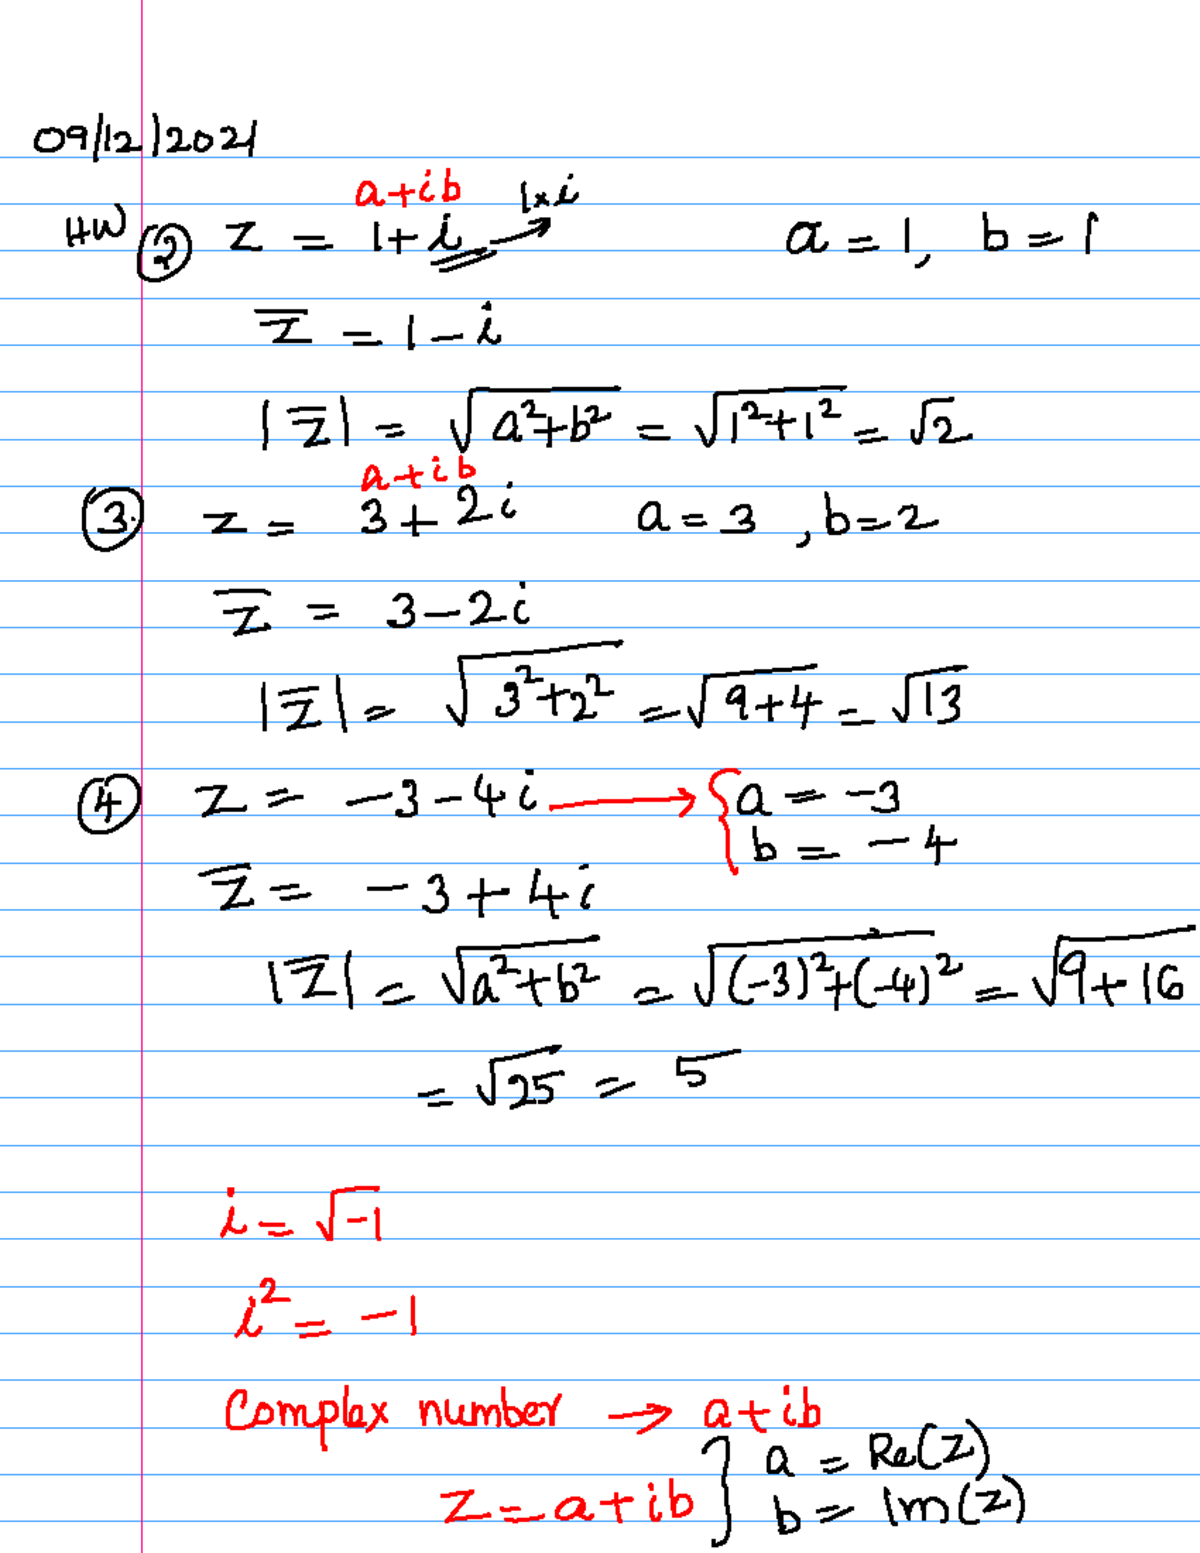 09/12/2021
a+ib 1×i
HW ② z = 1+i a = 1, b = 1
z̅ = 1-i
|z̅| = √(a²+b²) = √(1²+1²) = √2
a+ib
③ z = 3+2i a = 3, b=2
z̅ = 3-2i
|z̅| = √(3²+2²) = √(9+4) = √13
④ z = -3-4i → { a = -3
b = -4
z̅ = -3+4i
|z̅| = √(a²+b²) = √((-3)²+(-4)²) = √(9+16)
= √25 = 5
i = √-1
i² = -1
Complex number → a+ib
a = Re(z)
z = a+ib } b = Im(z)